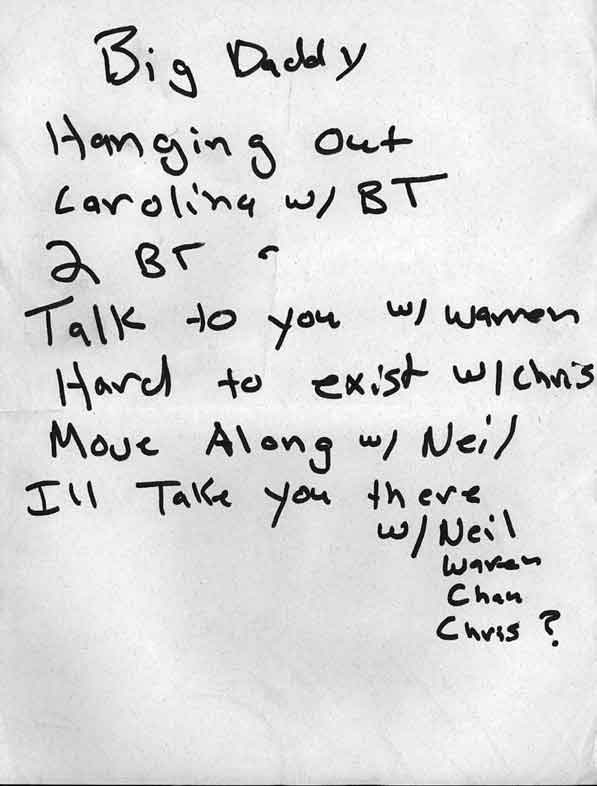 Big Daddy
Hanging Out
Carolina w/ BT
2 BT
Talk to you w/ Warren
Hard to exist w/ Chris
Move Along w/ Neil
I'll Take you there
w/ Neil
Waren
Chan
Chris ?